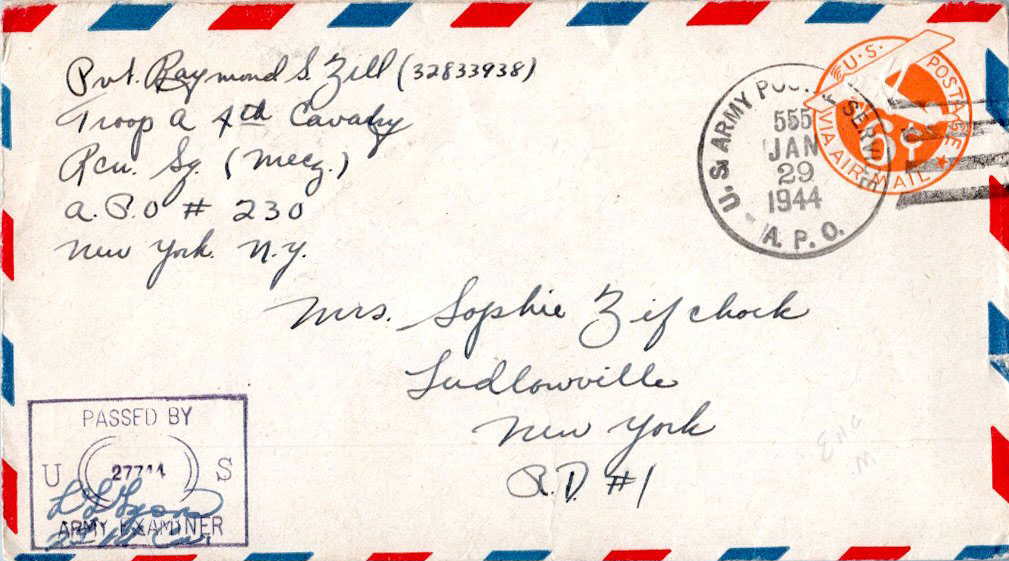 Pvt. Raymond S. Zill (32833938)
Troop A 4th Cavalry
Rcn. Sq. (Mecz.)
A.P.O # 230
New York. N.Y.
U.S. ARMY POSTAL SERVICE
555
JAN
29
1944
A.P.O.
U.S. POSTAGE
VIA AIR MAIL
6¢
Mrs. Sophie Zifchock
Ludlowville
New York
R.D. #1
PASSED BY
U 27744 S
ARMY EXAMINER
ENG
M